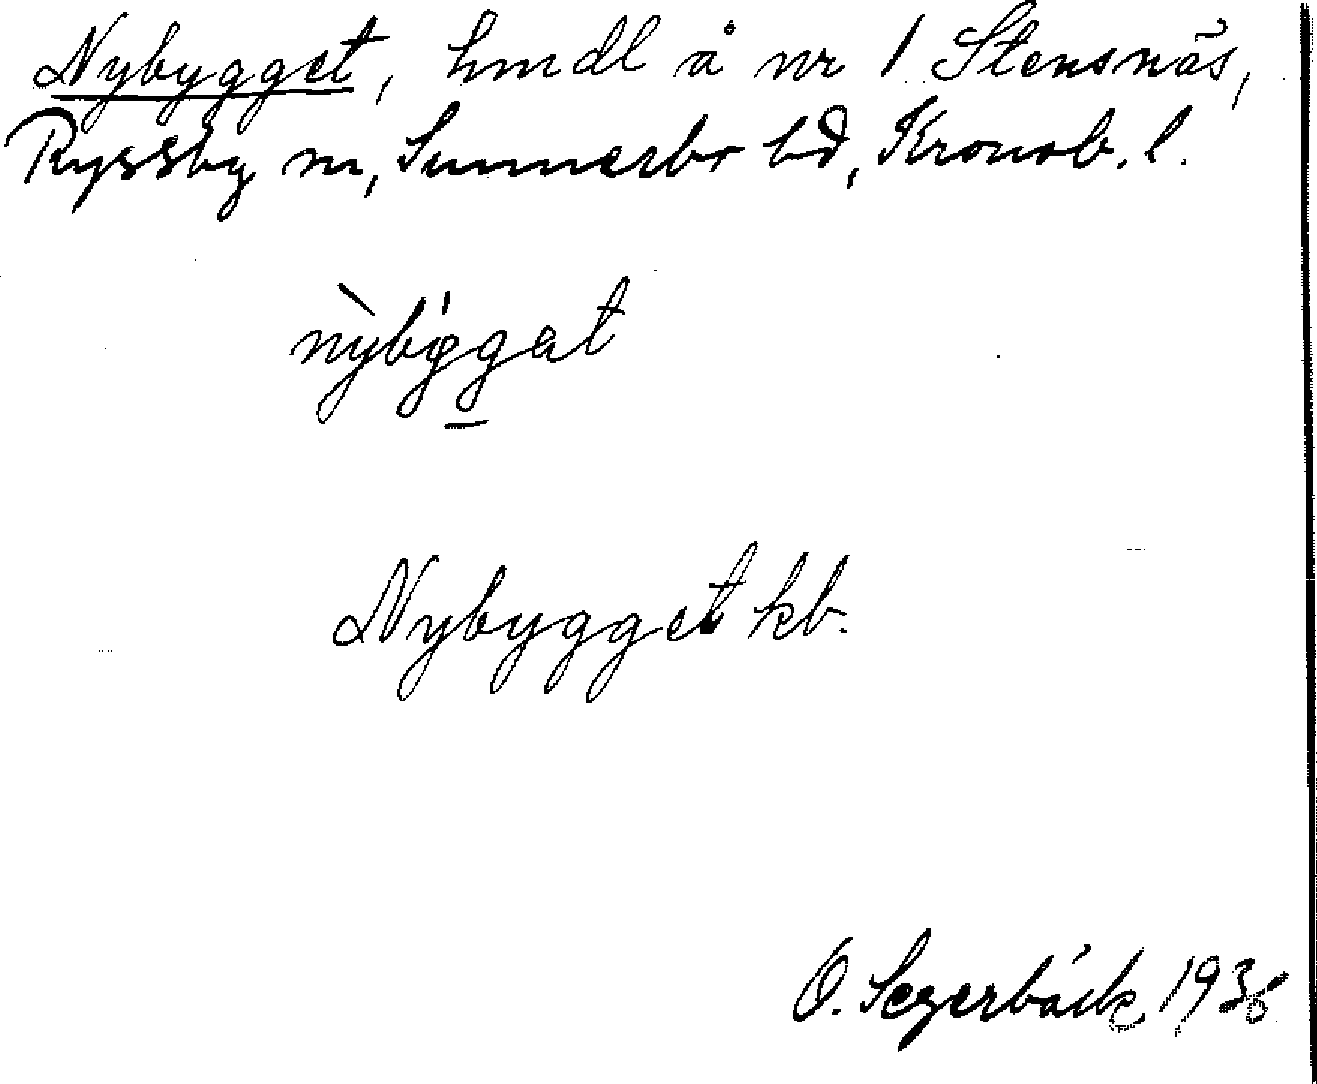 Nybygget, hmdl å nr 1 Stensnäs,
Ryssby sn, Sunnerbo hd, Kronob. l.
nỳbýggat
Nybygget kb.
O. Segerbäck 1936